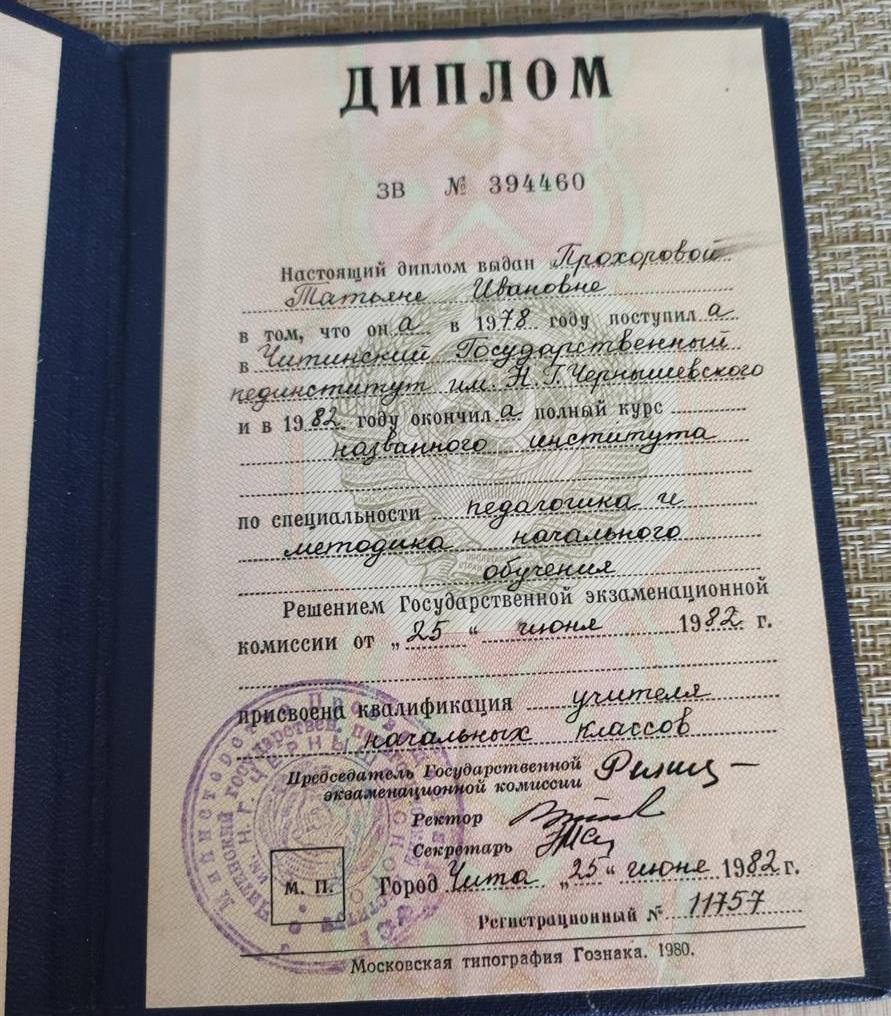 ДИПЛОМ
ЗВ № 394460
Настоящий диплом выдан Прохоровой
Татьяне Ивановне
в том, что он а в 1978 году поступил а
в Читинский Государственный
пединститут им. Н.Г. Чернышевского
и в 1982 году окончил а полный курс
названного института
по специальности педагогика и
методика начального
обучения
Решением Государственной экзаменационной
комиссии от „25“ июня 1982 г.
присвоена квалификация учителя
начальных классов
Председатель Государственной
экзаменационной комиссии
Ректор
Секретарь
М. П.
Город Чита „25“ июне 1982 г.
Регистрационный № 11757
Московская типография Гознака. 1980.